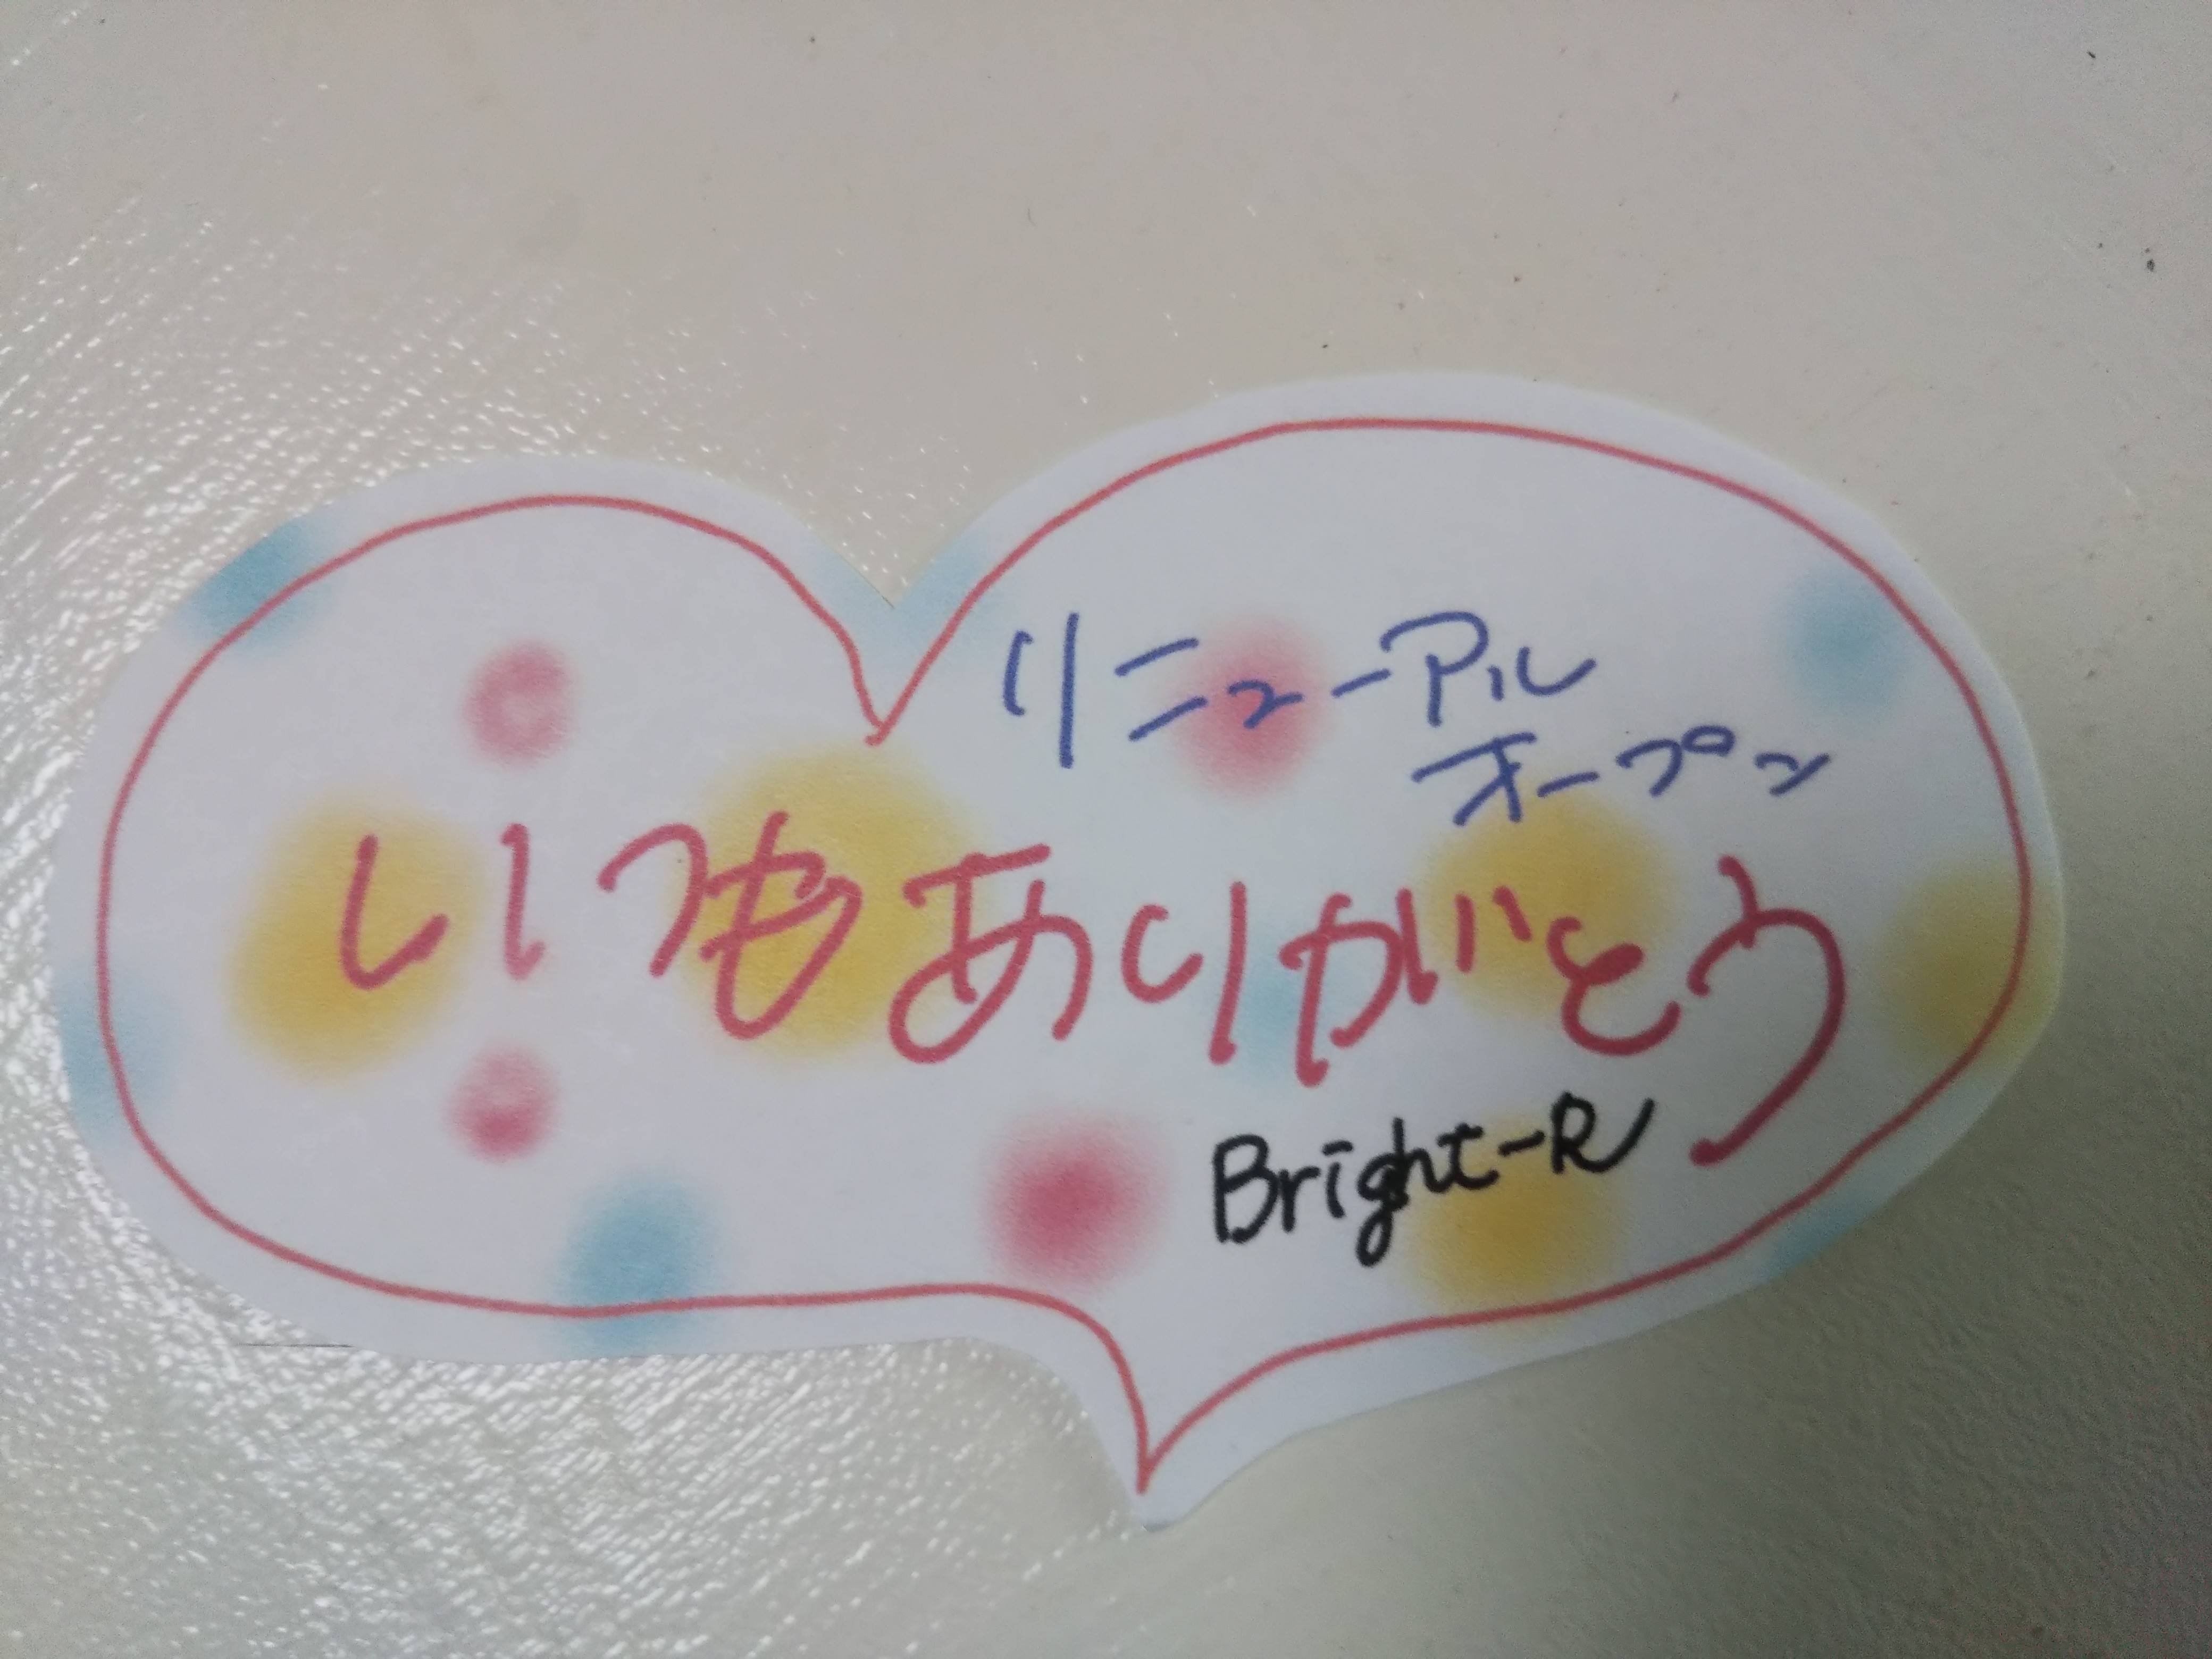 リニューアル
オープン
いつもありがとう
Bright-R